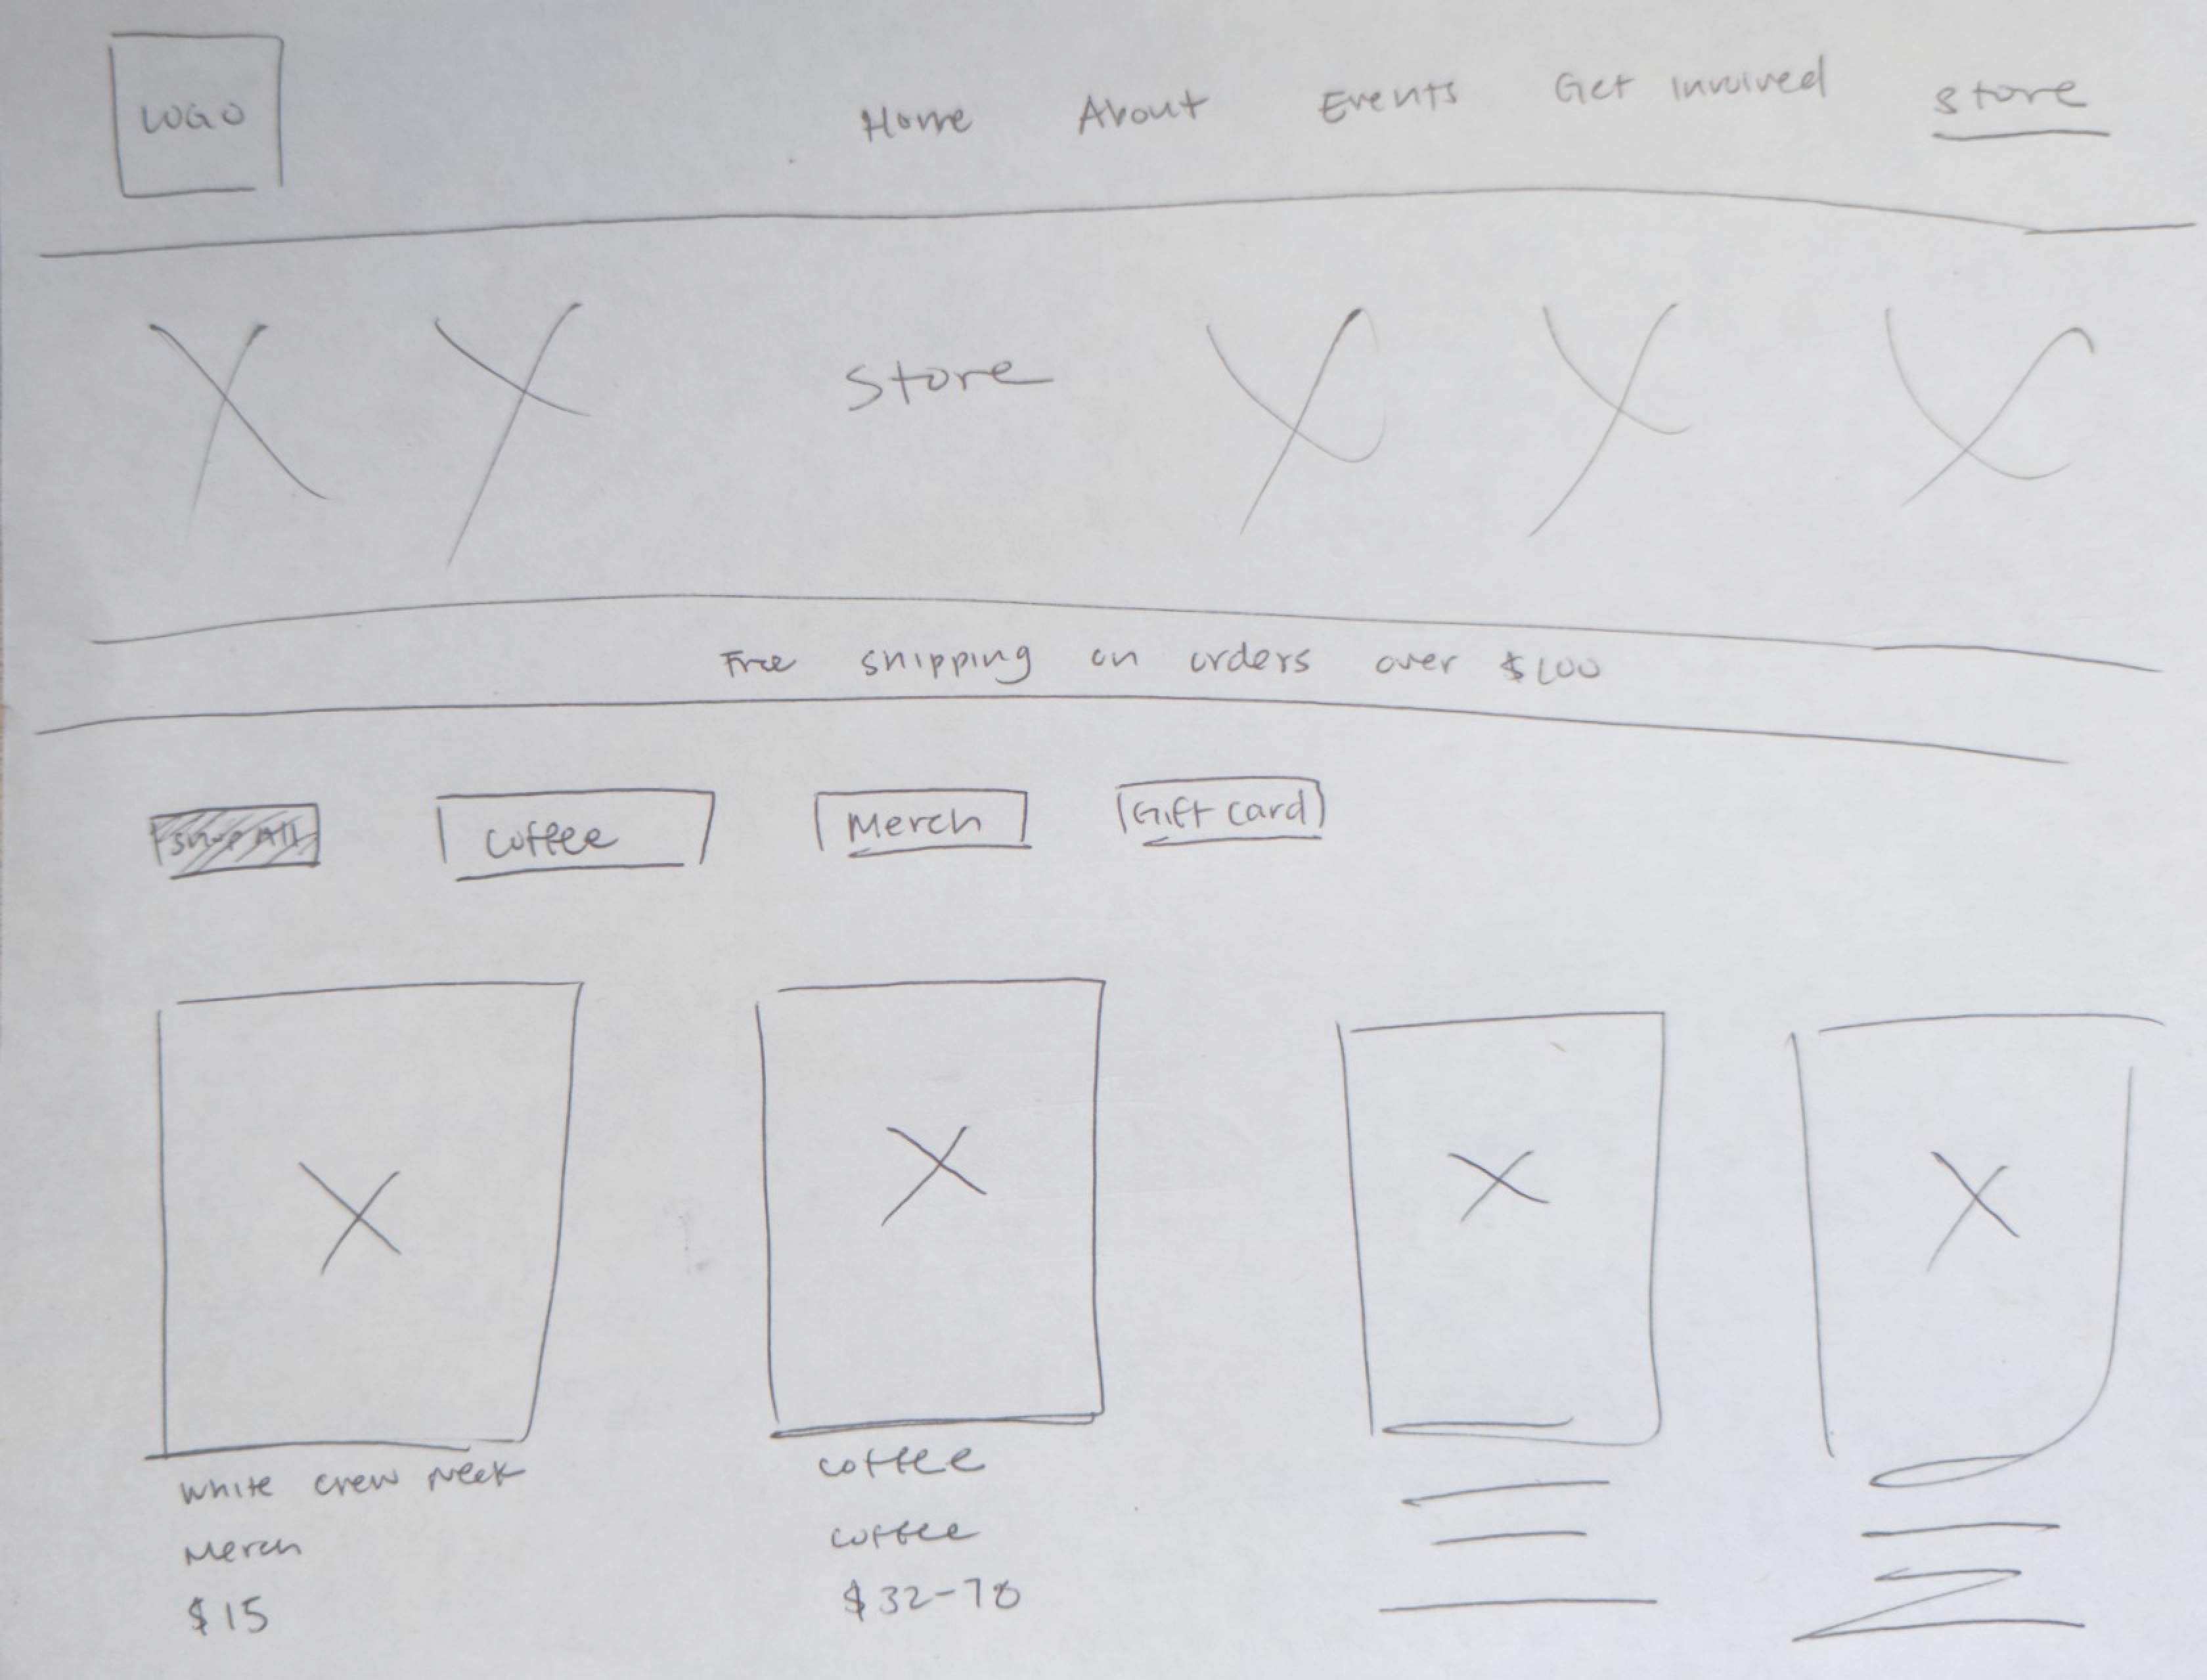 LOGO
Home About Events Get Involved Store
Store
Free shipping on orders over $100
Shop All Coffee Merch Gift Card
White crew neck
Merch
$15
coffee
coffee
$32-78